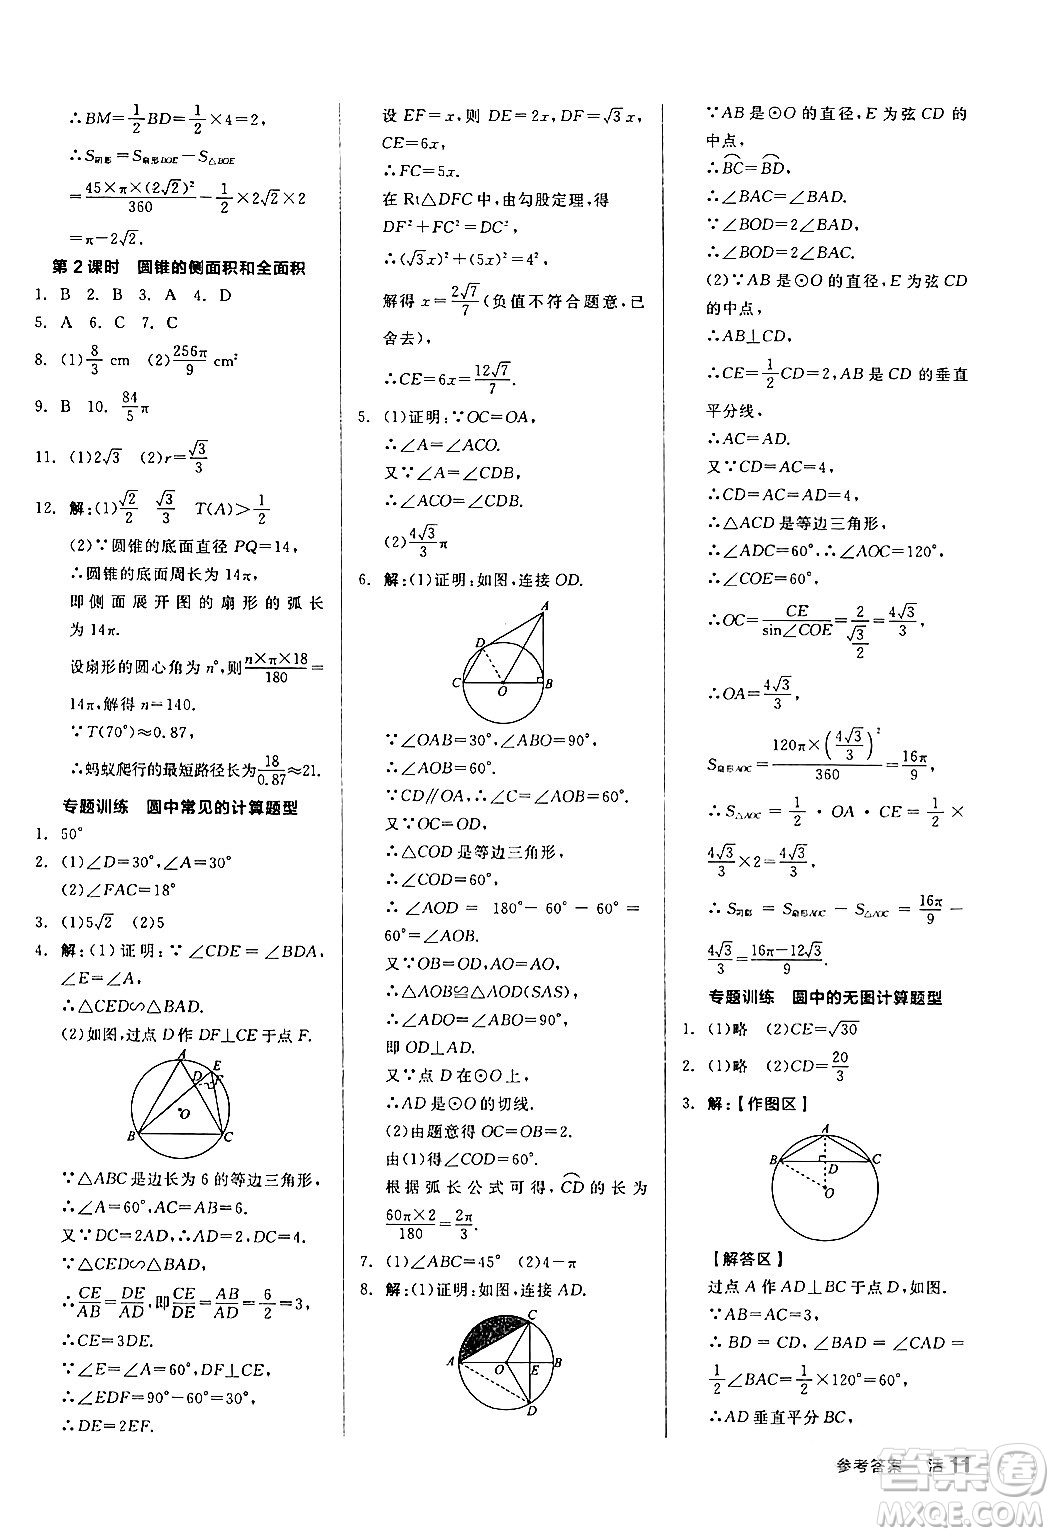 ∴BM=1/2BD=1/2×4=2,
∴S阴影=S扇形BOE−S△BOE
=45×π×(2√2)²/360−1/2×2√2×2
=π−2√2.
第2课时 圆锥的侧面积和全面积
1. B 2. B 3. A 4. D
5. A 6. C 7. C
8. (1)8/3 cm (2)256π/9 cm²
9. B 10. 84/5π
11. (1)2√3 (2)r=√3/3
12. 解:(1)√2/2 √3/3 T(A)>1/2
(2)∵圆锥的底面直径PQ=14,
∴圆锥的底面周长为14π,
即侧面展开图的扇形的弧长
为14π.
设扇形的圆心角为n°,则n×π×18/180=
14π,解得n=140.
∵T(70°)≈0.87,
∴蚂蚁爬行的最短路径长为18/0.87≈21.
专题训练 圆中常见的计算题型
1. 50°
2. (1)∠D=30°,∠A=30°
(2)∠FAC=18°
3. (1)5√2 (2)5
4. 解:(1)证明:∵∠CDE=∠BDA,
∠E=∠A,
∴△CED∽△BAD.
(2)如图,过点D作DF⊥CE于点F.
A
E
D
F
O
B
C
∵△ABC是边长为6的等边三角形,
∴∠A=60°,AC=AB=6.
又∵DC=2AD,∴AD=2,DC=4.
∵△CED∽△BAD,
∴CE/AB=DE/AD,即CE/DE=AB/AD=6/2=3,
∴CE=3DE.
∵∠E=∠A=60°,DF⊥CE,
∴∠EDF=90°−60°=30°,
∴DE=2EF.
设EF=x,则DE=2x,DF=√3x,
CE=6x,
∴FC=5x.
在Rt△DFC中,由勾股定理,得
DF²+FC²=DC²,
∴(√3x)²+(5x)²=4²,
解得x=2√7/7(负值不符合题意,已
舍去),
∴CE=6x=12√7/7.
5. (1)证明:∵OC=OA,
∴∠A=∠ACO.
又∵∠A=∠CDB,
∴∠ACO=∠CDB.
(2)4√3/3π
6. 解:(1)证明:如图,连接OD.
A
D
C
O
B
∵∠OAB=30°,∠ABO=90°,
∴∠AOB=60°.
∵CD∥OA,∴∠C=∠AOB=60°.
又∵OC=OD,
∴△COD是等边三角形,
∴∠COD=60°,
∴∠AOD=180°−60°−60°=
60°=∠AOB.
又∵OB=OD,AO=AO,
∴△AOB≌△AOD(SAS),
∴∠ADO=∠ABO=90°,
即OD⊥AD.
又∵点D在⊙O上,
∴AD是⊙O的切线.
(2)由题意得OC=OB=2.
由(1)得∠COD=60°.
根据弧长公式可得,CD的长为
60π×2/180=2π/3.
7. (1)∠ABC=45° (2)4−π
8. 解:(1)证明:如图,连接AD.
C
A
O
E
B
D
∵AB是⊙O的直径,E为弦CD的
中点,
∴BC=BD,
∴∠BAC=∠BAD.
∵∠BOD=2∠BAD,
∴∠BOD=2∠BAC.
(2)∵AB是⊙O的直径,E为弦CD
的中点,
∴AB⊥CD,
∴CE=1/2CD=2,AB是CD的垂直
平分线,
∴AC=AD.
又∵CD=AC=4,
∴CD=AC=AD=4,
∴△ACD是等边三角形,
∴∠ADC=60°,∴∠AOC=120°,
∴∠COE=60°,
∴OC=CE/sin∠COE=2/(√3/2)=4√3/3,
∴OA=4√3/3,
S扇形AOC=120π×(4√3/3)²/360=16π/9,
∴S△AOC=1/2·OA·CE=1/2×
4√3/3×2=4√3/3,
∴S阴影=S扇形AOC−S△AOC=16π/9−
4√3/3=16π−12√3/9.
专题训练 圆中的无图计算题型
1. (1)略 (2)CE=√30
2. (1)略 (2)CD=20/3
3. 解:【作图区】
A
B
D
C
O
【解答区】
过点A作AD⊥BC于点D,如图.
∵AB=AC=3,
∴BD=CD,∠BAD=∠CAD=
1/2∠BAC=1/2×120°=60°,
∴AD垂直平分BC,
参考答案 活 11
答案圈
MXQE.COM